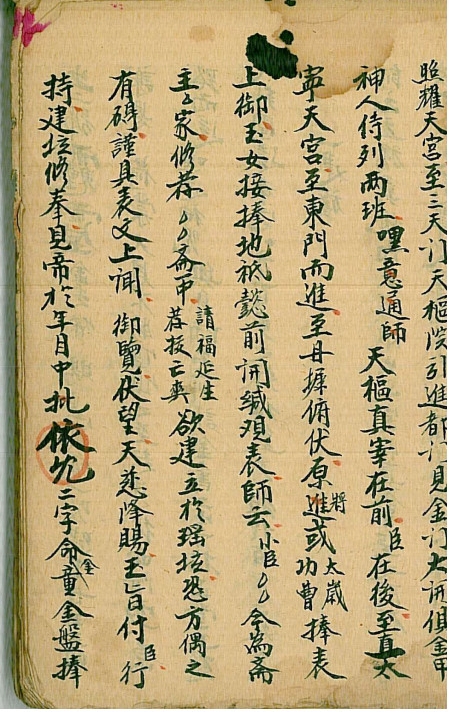 照耀天宮至三天门天樞院引進都门見金门大開俱金甲
神人侍列两班嘿意通師 天樞真宰在前臣在後至真太
寧天宮至東門而進至丹墀俯伏原進將或太歲功曹捧表
上御玉女接捧地祇懿前開緘观表師云小臣〻〻今為斎
主〻家修荐〻〻斎甲請福延生荐拔亡爽欲建立於瑶坛恐方偶之
有碍謹具表文上闻御覽伏望天慈降賜玉旨付臣行
持建坛修奉見帝於年月中批依允二字命金童金盤捧